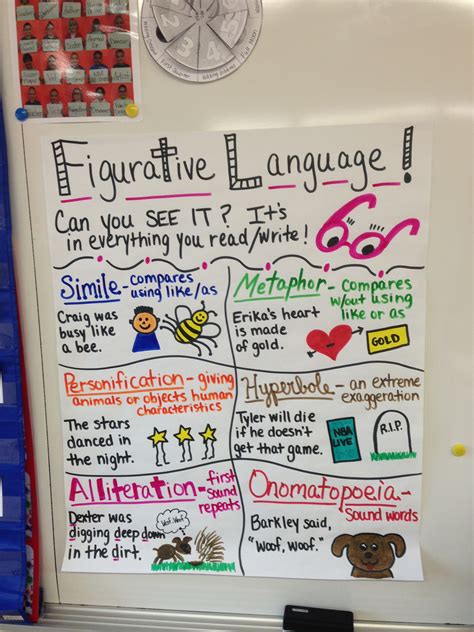 Figurative Language!
Can you SEE IT? It's
in everything you read/write!
Simile - compares
using like/as
Craig was
busy like
a bee.
Metaphor - compares
w/out using
like or as
Erika's heart
is made
of gold.
GOLD
Personification - giving
animals or objects human
characteristics
The stars
danced in
the night.
Hyperbole - an extreme
exaggeration
Tyler will die
if he doesn't
get that game.
NBA
LIVE
R.I.P.
Alliteration - first
sound
repeats
Dexter was
digging deep down
in the dirt.
Woof, Woof!
Onomatopoeia -
sound words
Barkley said,
"Woof, woof."